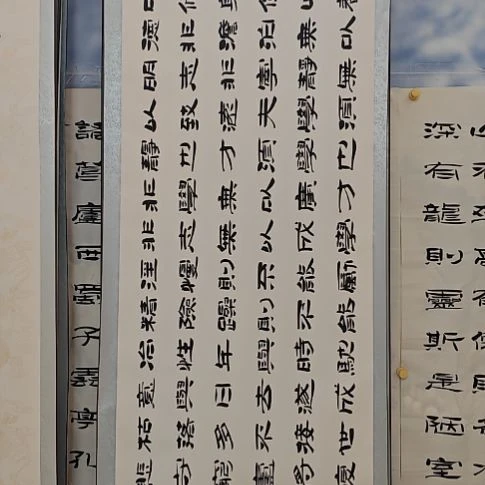 山不在高有僊則名水
深有龍則靈斯是陋室
德非澹泊無以
明志非寧靜無
以致遠夫學湏
靜也才湏學也
非學無以廣才
非志無以成學
淫慢則不能勵
精險躁則不能
治性年與時馳
意與日去遂成
枯落多不接世
悲守窮廬將復
諸葛廬西蜀子雲亭孔